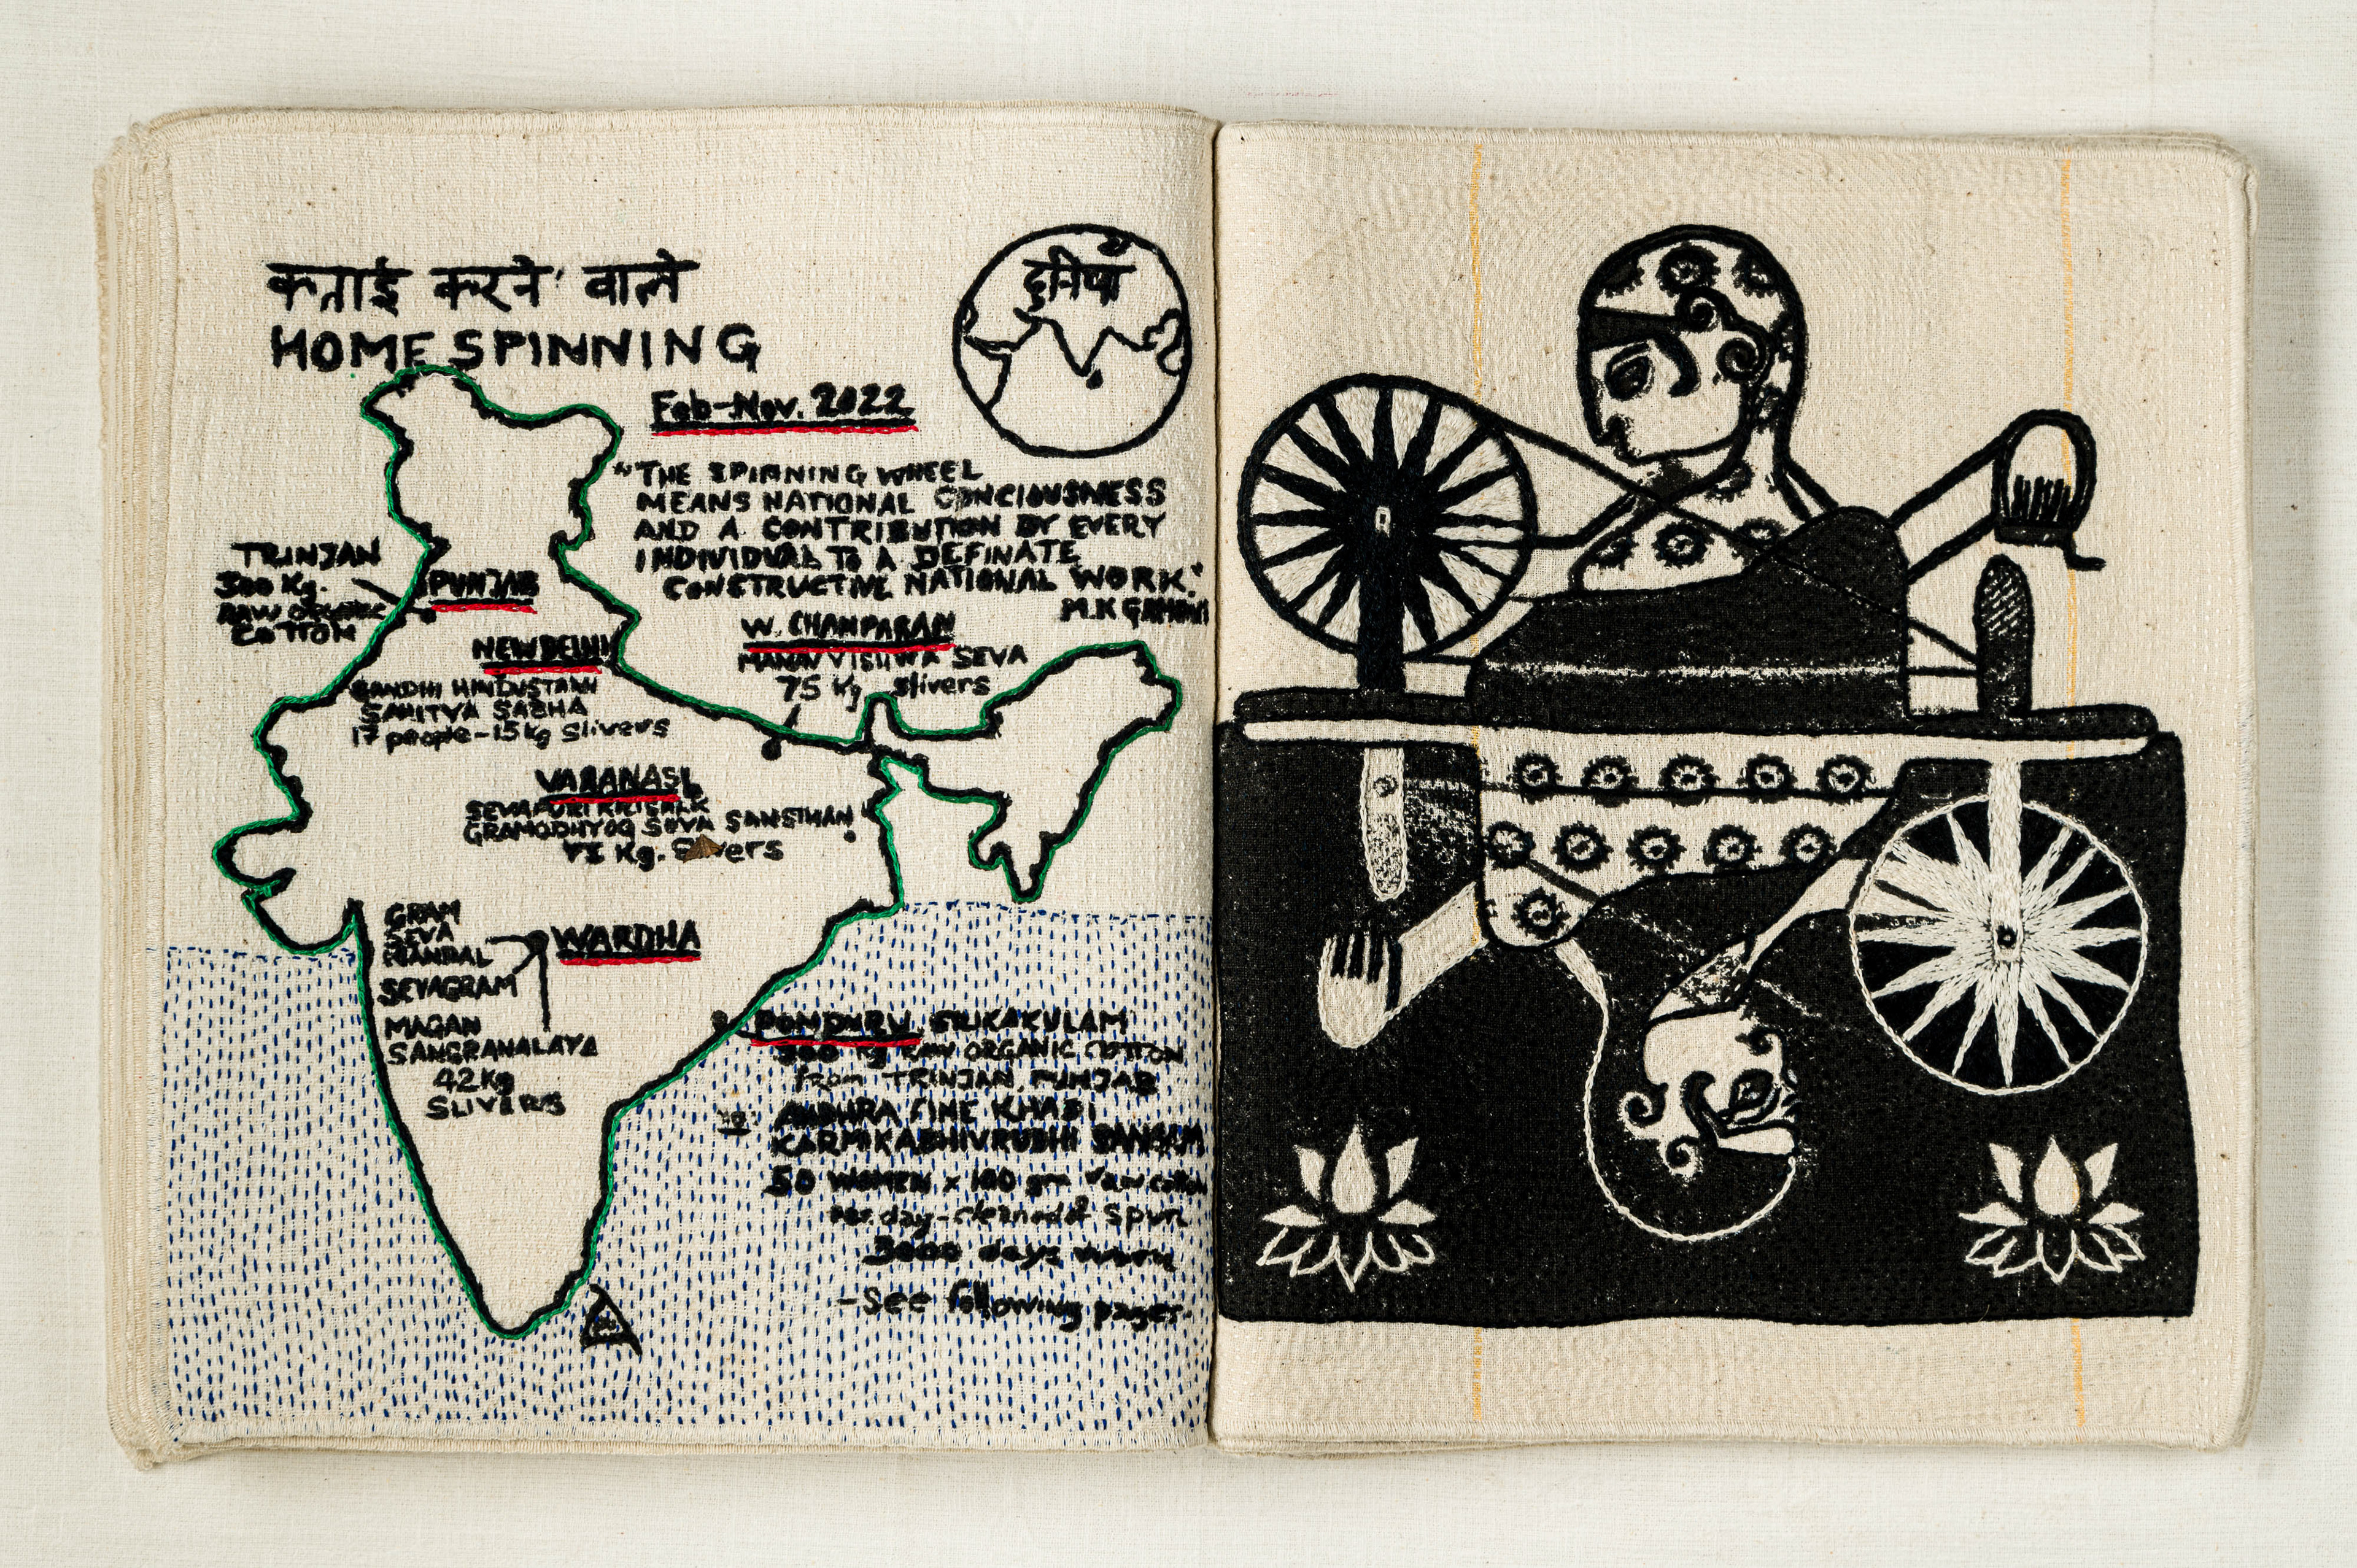 कताई करने वाले
HOME SPINNING
दुनियाँ
Feb-Nov. 2022
"THE SPINNING WHEEL
MEANS NATIONAL CONCIOUSNESS
AND A CONTRIBUTION BY EVERY
INDIVIDUAL TO A DEFINATE
CONSTRUCTIVE NATIONAL WORK."
M.K GANDHI
TRINJAN
300 Kg.
RAW ORGANIC
COTTON
PUNJAB
NEW DELHI
GANDHI HINDUSTANI
SAHITYA SABHA
17 people-15kg Slivers
W. CHAMPARAN
MANAV VISHWA SEVA
75 Kg slivers
VARANASI
SEVAPURI
GRAMODHYOG SEVA SANSTHAN
Kg.
GRAM
SEVA
MANDAL
SEVAGRAM
MAGAN
SANGRANALAYA
42Kg
SLIVERS
WARDHA
PONDURU, SRIKAKULAM
300 Kg RAW ORGANIC COTTON
from TRINJAN, PUNJAB
ANDHRA FINE KHADI
KARMIKABHIVRUDHI SANGAM
50 WOMEN x 100 gm raw cotton
per day-cleaned & spun
3000 days work
-See following pages.